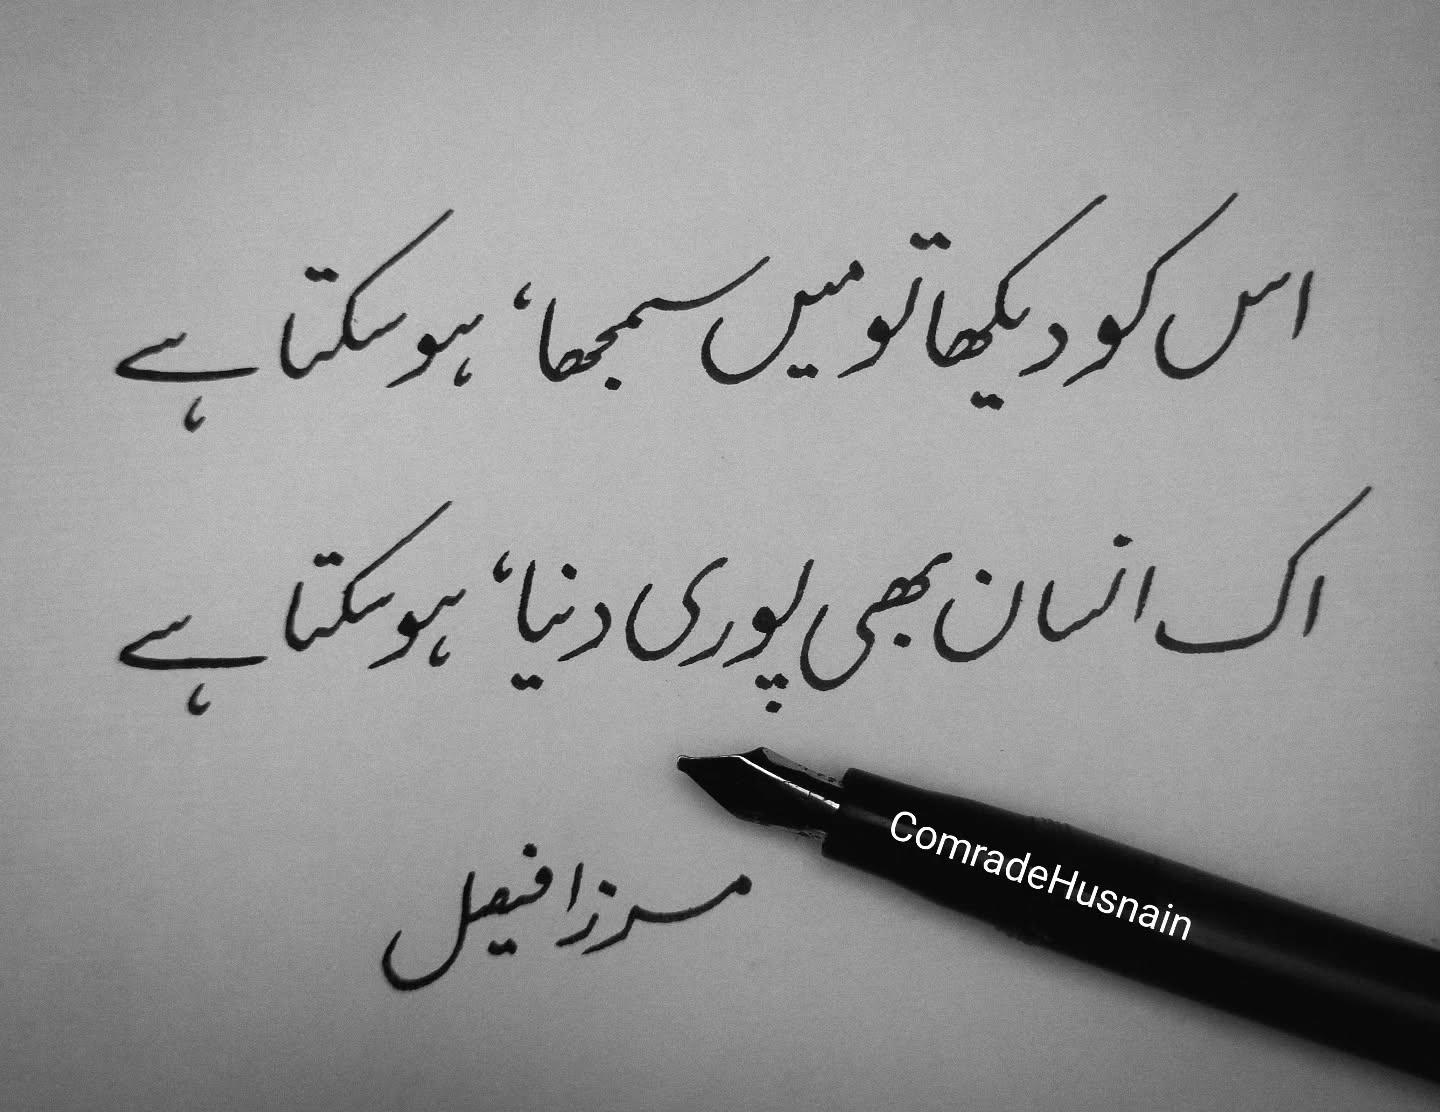 اس کو دیکھا تو میں سمجھا، ہو سکتا ہے
اک انسان بھی پوری دنیا، ہو سکتا ہے
مرزا فیصل
ComradeHusnain